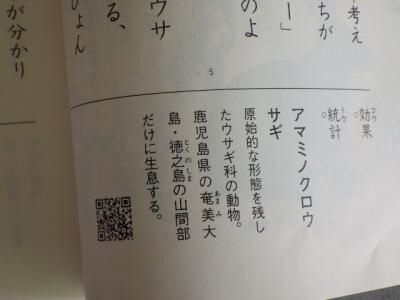 考え
ちが
ー」
のよ
ウサ
る、
ひょん
が分かり
5
効果
コウ
統計
トウ
アマミノクロウ
サギ
原始的な形態を残し
たウサギ科の動物。
鹿児島県の奄美大
あまみ
島・徳之島の山間部
とくのしま
だけに生息する。